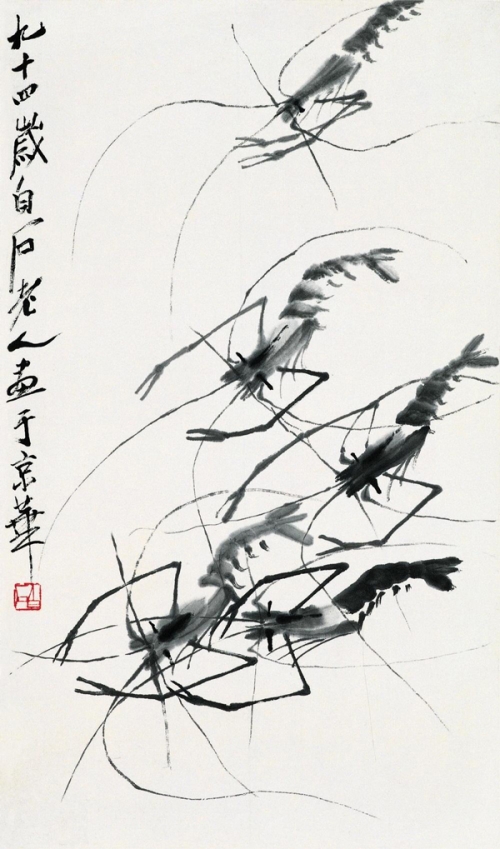 九十四歲白石老人畫于京華